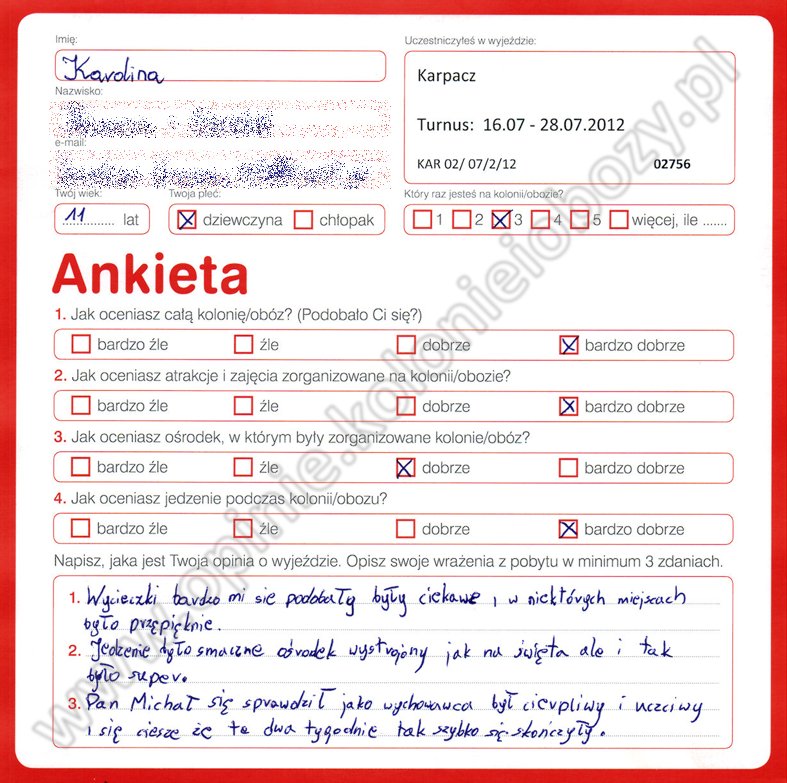 Imię:
Karolina
Uczestniczyłeś w wyjeździe:
Karpacz
Turnus: 16.07 - 28.07.2012
KAR 02/ 07/2/12 02756
Nazwisko:
e-mail:
Twój wiek:
11 lat
Twoja płeć:
dziewczyna chłopak
Który raz jesteś na kolonii/obozie?
1 2 3 4 5 więcej, ile .......
Ankieta
1. Jak oceniasz całą kolonię/obóz? (Podobało Ci się?)
bardzo źle źle dobrze bardzo dobrze
2. Jak oceniasz atrakcje i zajęcia zorganizowane na kolonii/obozie?
bardzo źle źle dobrze bardzo dobrze
3. Jak oceniasz ośrodek, w którym były zorganizowane kolonie/obóz?
bardzo źle źle dobrze bardzo dobrze
4. Jak oceniasz jedzenie podczas kolonii/obozu?
bardzo źle źle dobrze bardzo dobrze
Napisz, jaka jest Twoja opinia o wyjeździe. Opisz swoje wrażenia z pobytu w minimum 3 zdaniach.
1. Wycieczki bardzo mi sie podobały były ciekawe i w niektórych miejscach
było przępięknie.
2. Jedzenie było smaczne ośrodek wystrojony jak na święta ale i tak
było super.
3. Pan Michał się sprawdził jako wychowawca był cierpliwy i uczciwy
i się ciesze że te dwa tygodnie tak szybko się skończyły.
www.opinie.kolonieiobozy.pl